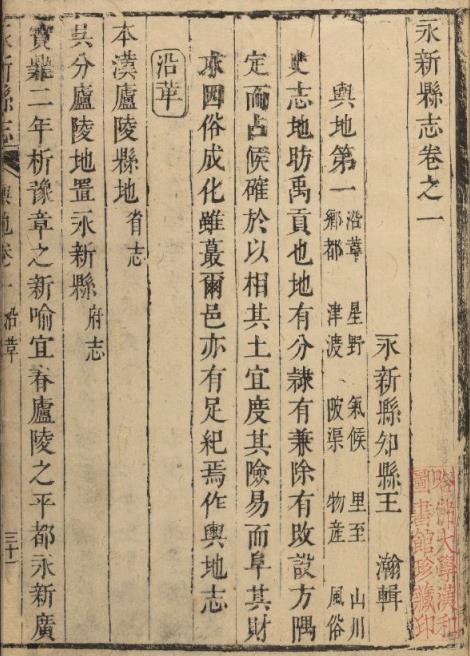 永新縣志卷之一
永新縣知縣王 瀚輯
輿地第一
沿革 星野 氣候 里至 山川
鄉都 津渡 陂渠 物産 風俗
史志地昉禹貢也地有分隸有兼除有改設方隅
定而占候確於以相其土宜度其險易而阜其財
求因俗成化雖蕞爾邑亦有足紀焉作輿地志
沿革
本漢廬陵縣地 省志
吳分廬陵地置永新縣 府志
寶鼎二年析豫章之新喻宜春廬陵之平都永新廣
永新縣志 輿地卷一 沿革
哈佛大學漢和
圖書館珍藏印